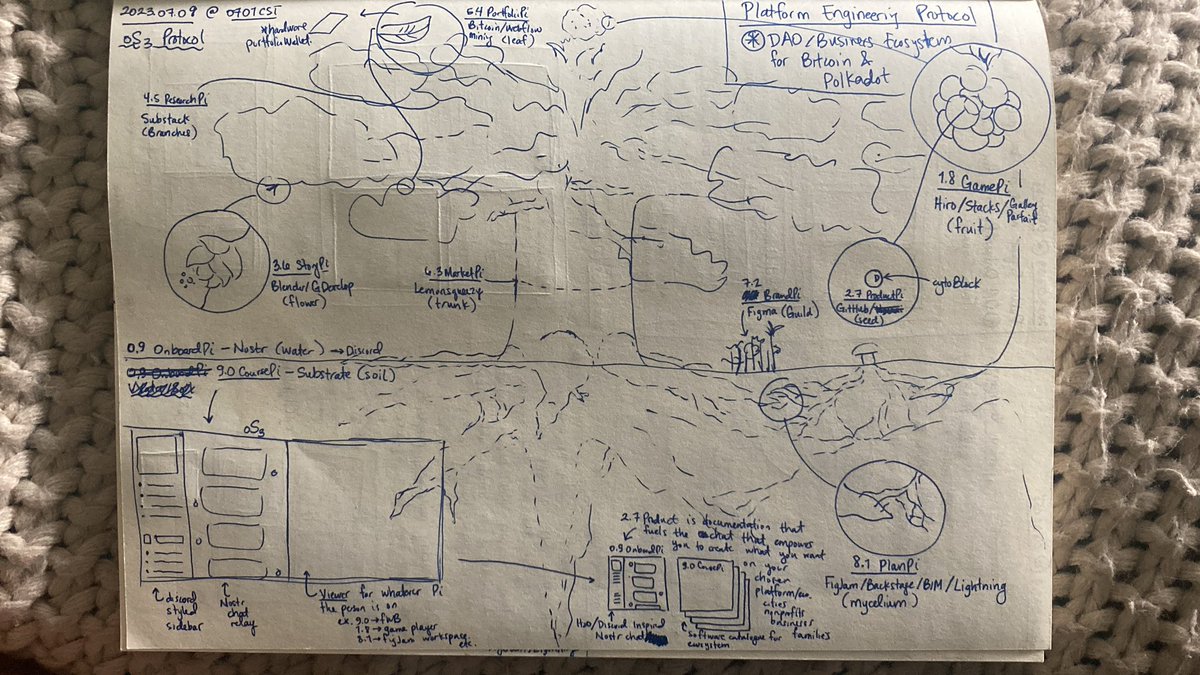 2023.07.09 @ 0707 CST
OS3 Protocol
*hardware
portfolio wallet.
5.4 PortfolioPi
Bitcoin/Webflow
mining (leaf)
Platform Engineering Protocol
DAO/Business Ecosystem
for Bitcoin &
Polkadot
4.5 ResearchPi
Substack
(Branches)
1.8 GamePi
Hiro/Stacks/Gallery
(fruit)
3.6 StoryPi
Blender/GDevelop
(flower)
6.3 MarketPi
Lemonsqueezy
(trunk)
7.2
BrandPi
Figma (Guild)
D
2.7 ProductPi
GitHub/
(seed)
cytoBlock
0.9 OnboardPi - Nostr (water) → Discord
9.0 CoursePi - Substrate (soil)
OS3
discord
styled
sidebar
Nostr
chat
relay
Viewer for whatever Pi
the person is on
ex. 9.0 → fwB
1.8 → game player
8.1 → figJam workspace,
etc.
2.7 Product is documentation that
fuels the chat that empowers
you to create what you want
on your
chosen
platform/
cities
nonprofits
businesses
families
0.9 OnboardPi
9.0 CoursePi
H20/Discord Inspired
Nostr chat
Software catalogue for
ecosystem
8.1 PlanPi
FigJam/Backstage/BIM/Lightning
(mycelium)